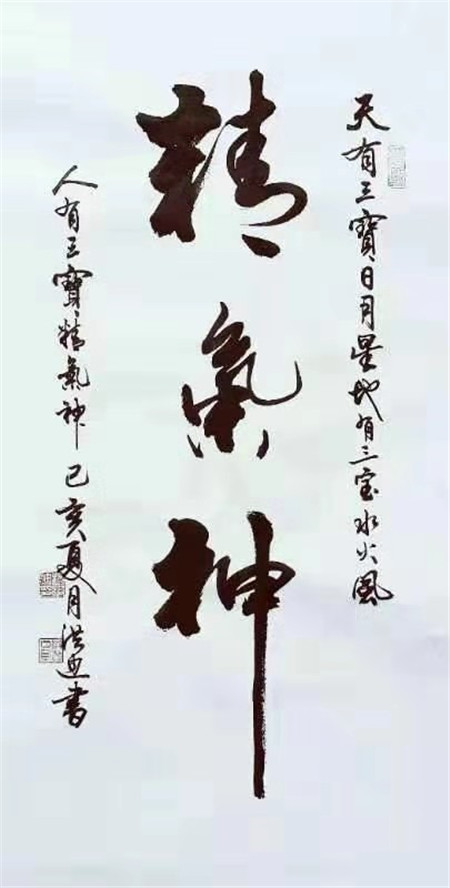 天有三寶日月星地有三宝水火風
精氣神
人有三寶精氣神 己亥夏月洪書